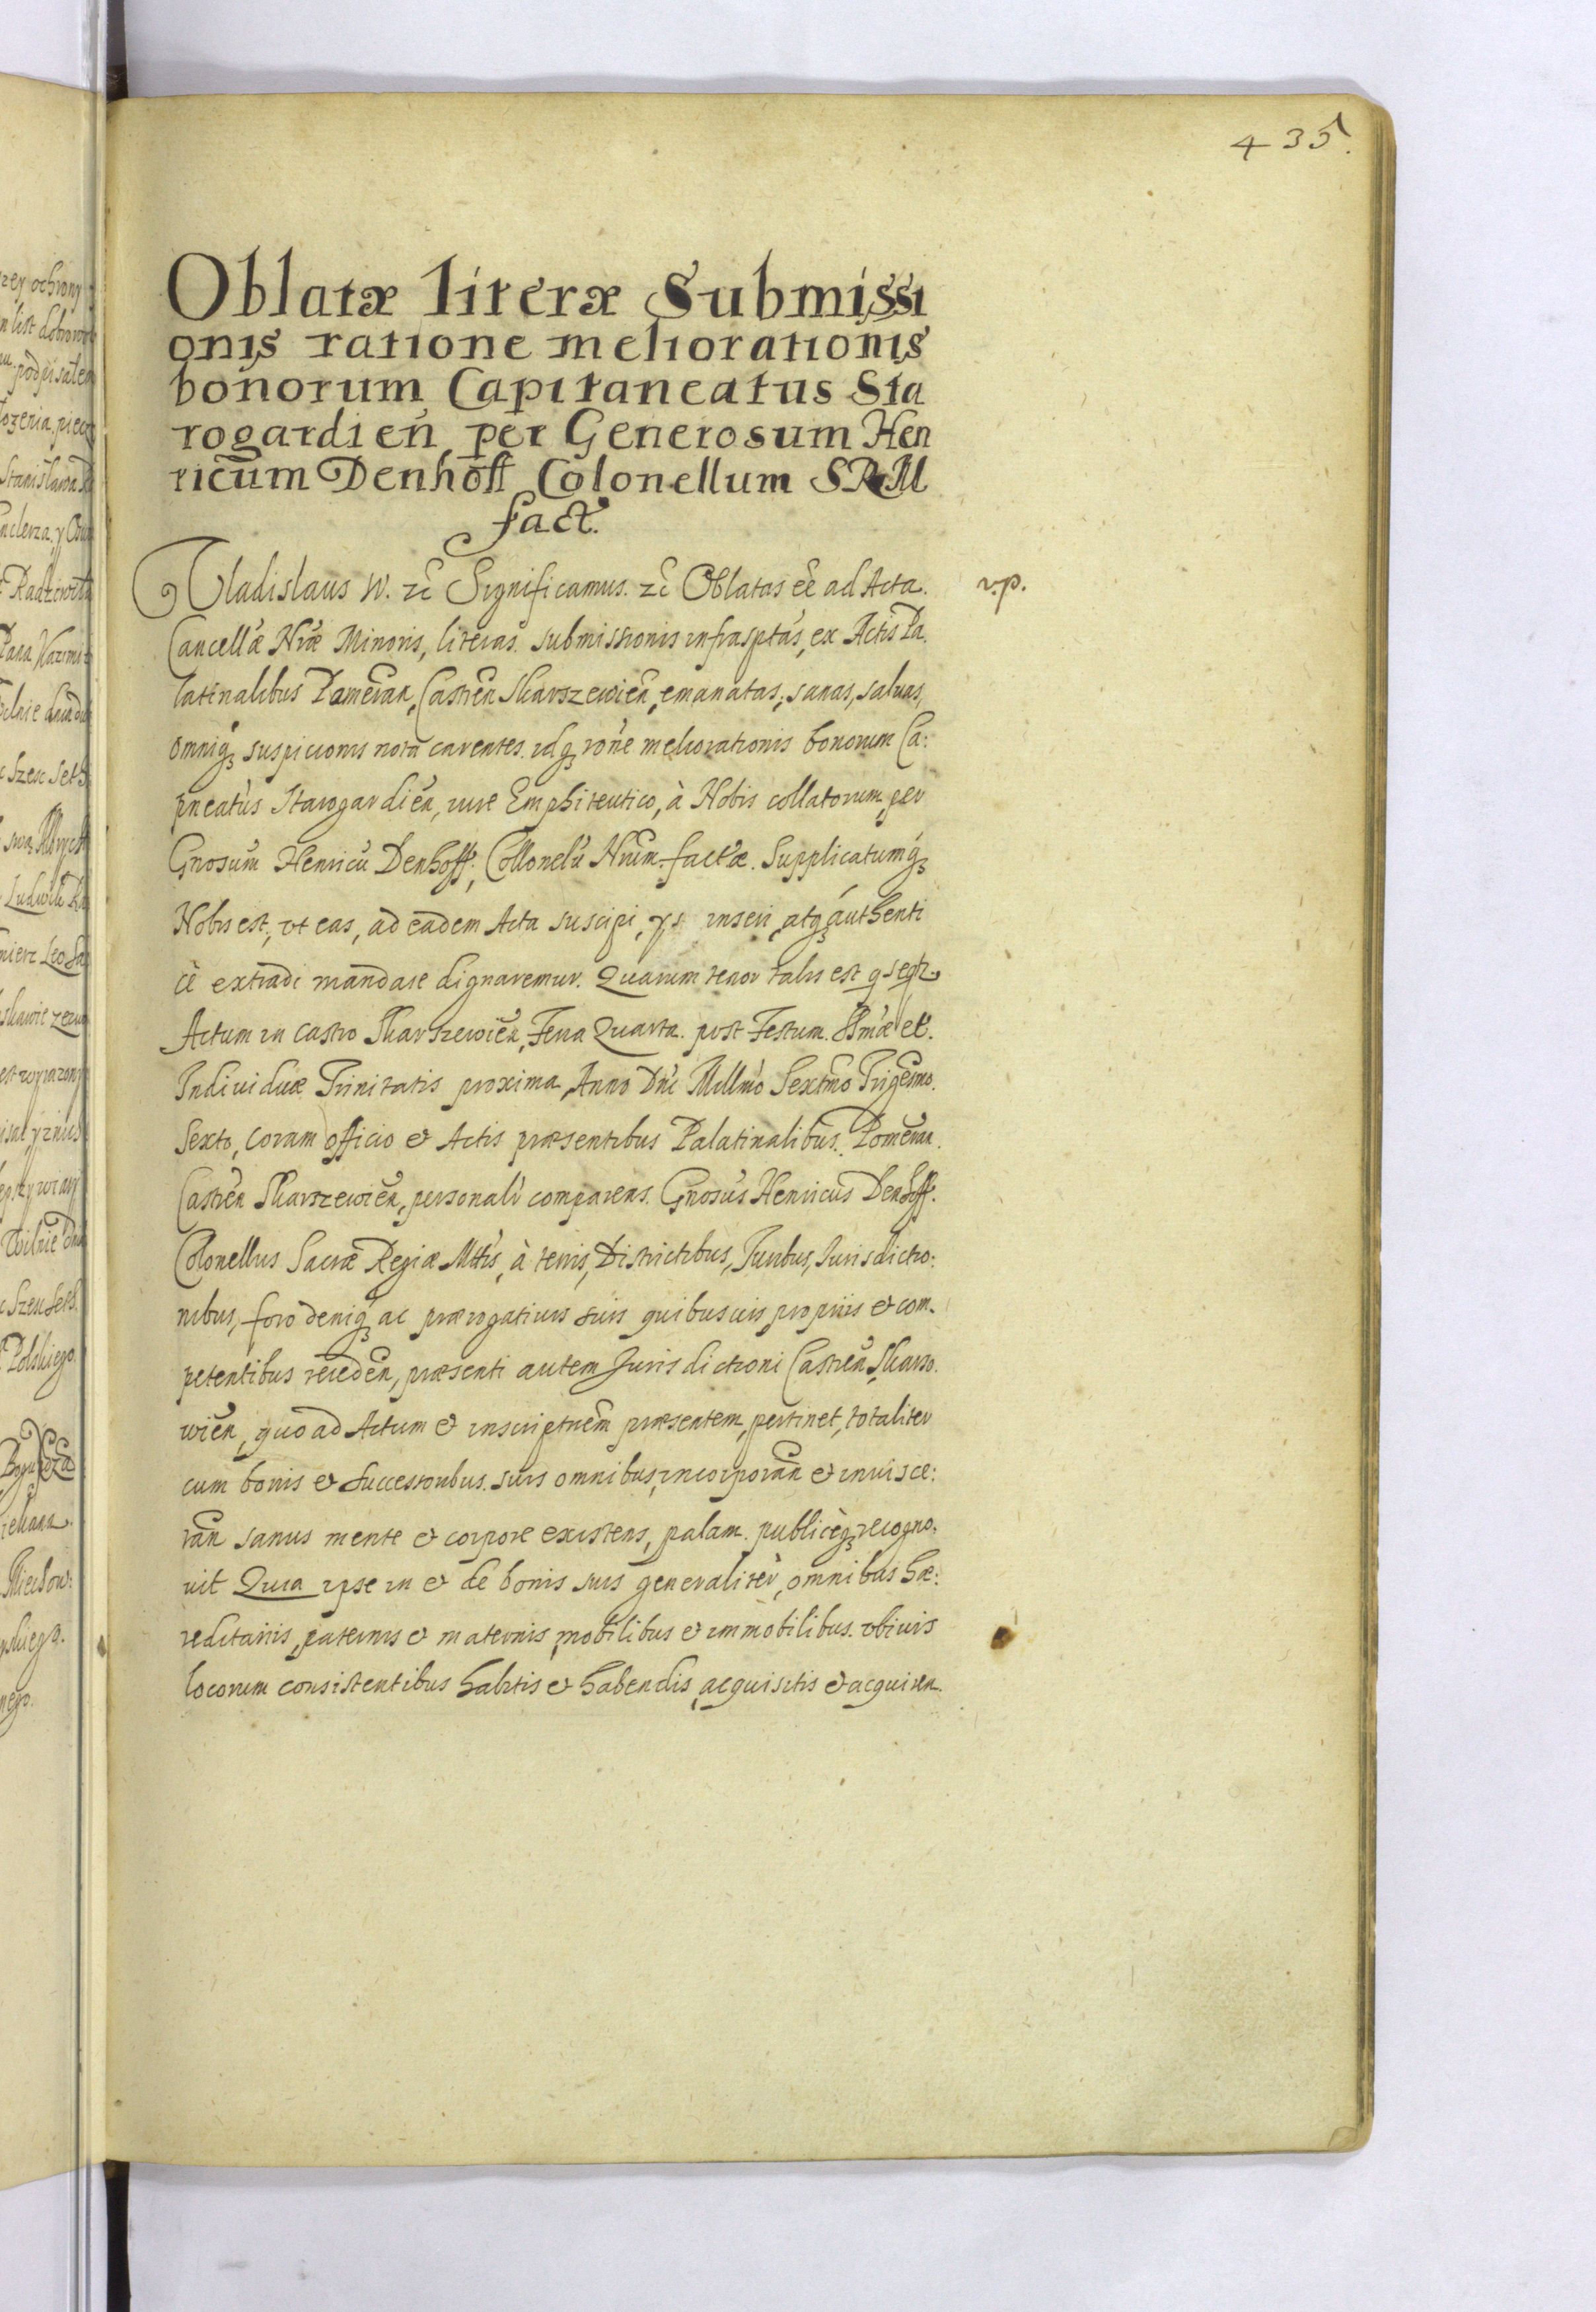 435.
Oblatæ literæ Submissi
onis ratione meliorationis
bonorum Capitaneatus Sta
rogardień per Generosum Hen
ricum Denhoff Colonellum SRM
fact.
Vladislaus IV. zc̃ Significamus. zc̃ Oblatas eẽ ad Acta. v.p.
Cancellæ Nræ Minoris, literas submissionis infrasptas, ex Actis Pa
latinalibus Pomeran, Castren Skarszewien, emanatas, sanas, saluas,
omniq; suspicionis nota carentes. idq; rone meliorationis bonorum Ca:
pneatus Starogardien, iure Emphiteutico, à Nobis collatorum, per
Gnosum Henricu Denhoff, Collonelu Nrum. factæ. Supplicatumq;
Nobis est, vt eas, ad eadem Acta suscipi, ys inseri, atq; authenti
cè extradi mandare dignaremur. Quarum tenor talis est q seqr.
Actum in castro Skarszewien, Feria Quarta. post Festum. SSmæ et.
Indiuiduæ Trinitatis proxima, Anno Dni Millmo Sextmo Trigesmo.
Sexto, coram officio et Actis præsentibus Palatinalibus. Pomeran.
Castren Skarszewien, personalr comparens. Gnosus Henricus Denhoff.
Colonellus Sacræ Regiæ Mttis, à terris, Districtibus, Juribus, Jurisdictio:
nibus, foro deniq; ac prærogatiuis suis quibusuis proprijs et com.
petentibus receden, præsenti autem Jurisdictioni Castren Skarso.
wien, quo ad Actum et inscriptnem præsentem, pertinet, totaliter
cum bonis et successoribus. suis omnibus, incorporan et inuisce:
ran sanus mente et corpore existens, palam. publicèq; recogno.
uit Quia ipse in et de bonis suis generaliter, omnibus hæ:
reditarijs, paternis et maternis, mobilibus et immobilibus. vbiuis
locorum consistentibus habitis et habendis, acquisitis et acquiren.